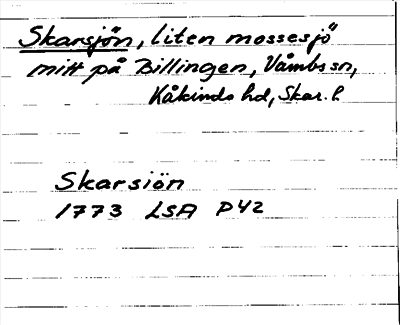 Skarsjön, liten mossesjö
mitt på Billingen, Våmbs sn,
Kåkinds hd, Skar. l.
Skarsiön
1773 LSA P42